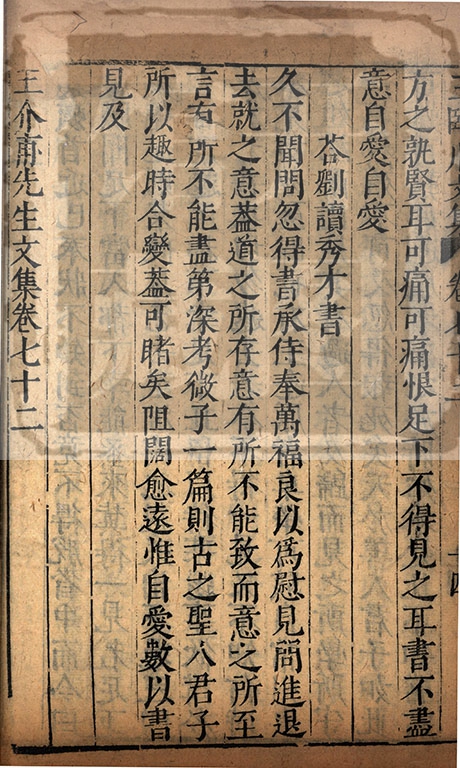 方之孰賢耳可痛可痛恨足下不得見之耳書不盡
意自愛自愛
荅劉讀秀才書
久不聞問忽得書承侍奉萬福良以爲慰見問進退
去就之意葢道之所存意有所不能致而意之所至
言有所不能盡第深考微子一篇則古之聖人君子
所以趣時合變葢可睹矣阻闊愈遠惟自愛數以書
見及
王介甫先生文集卷七十二